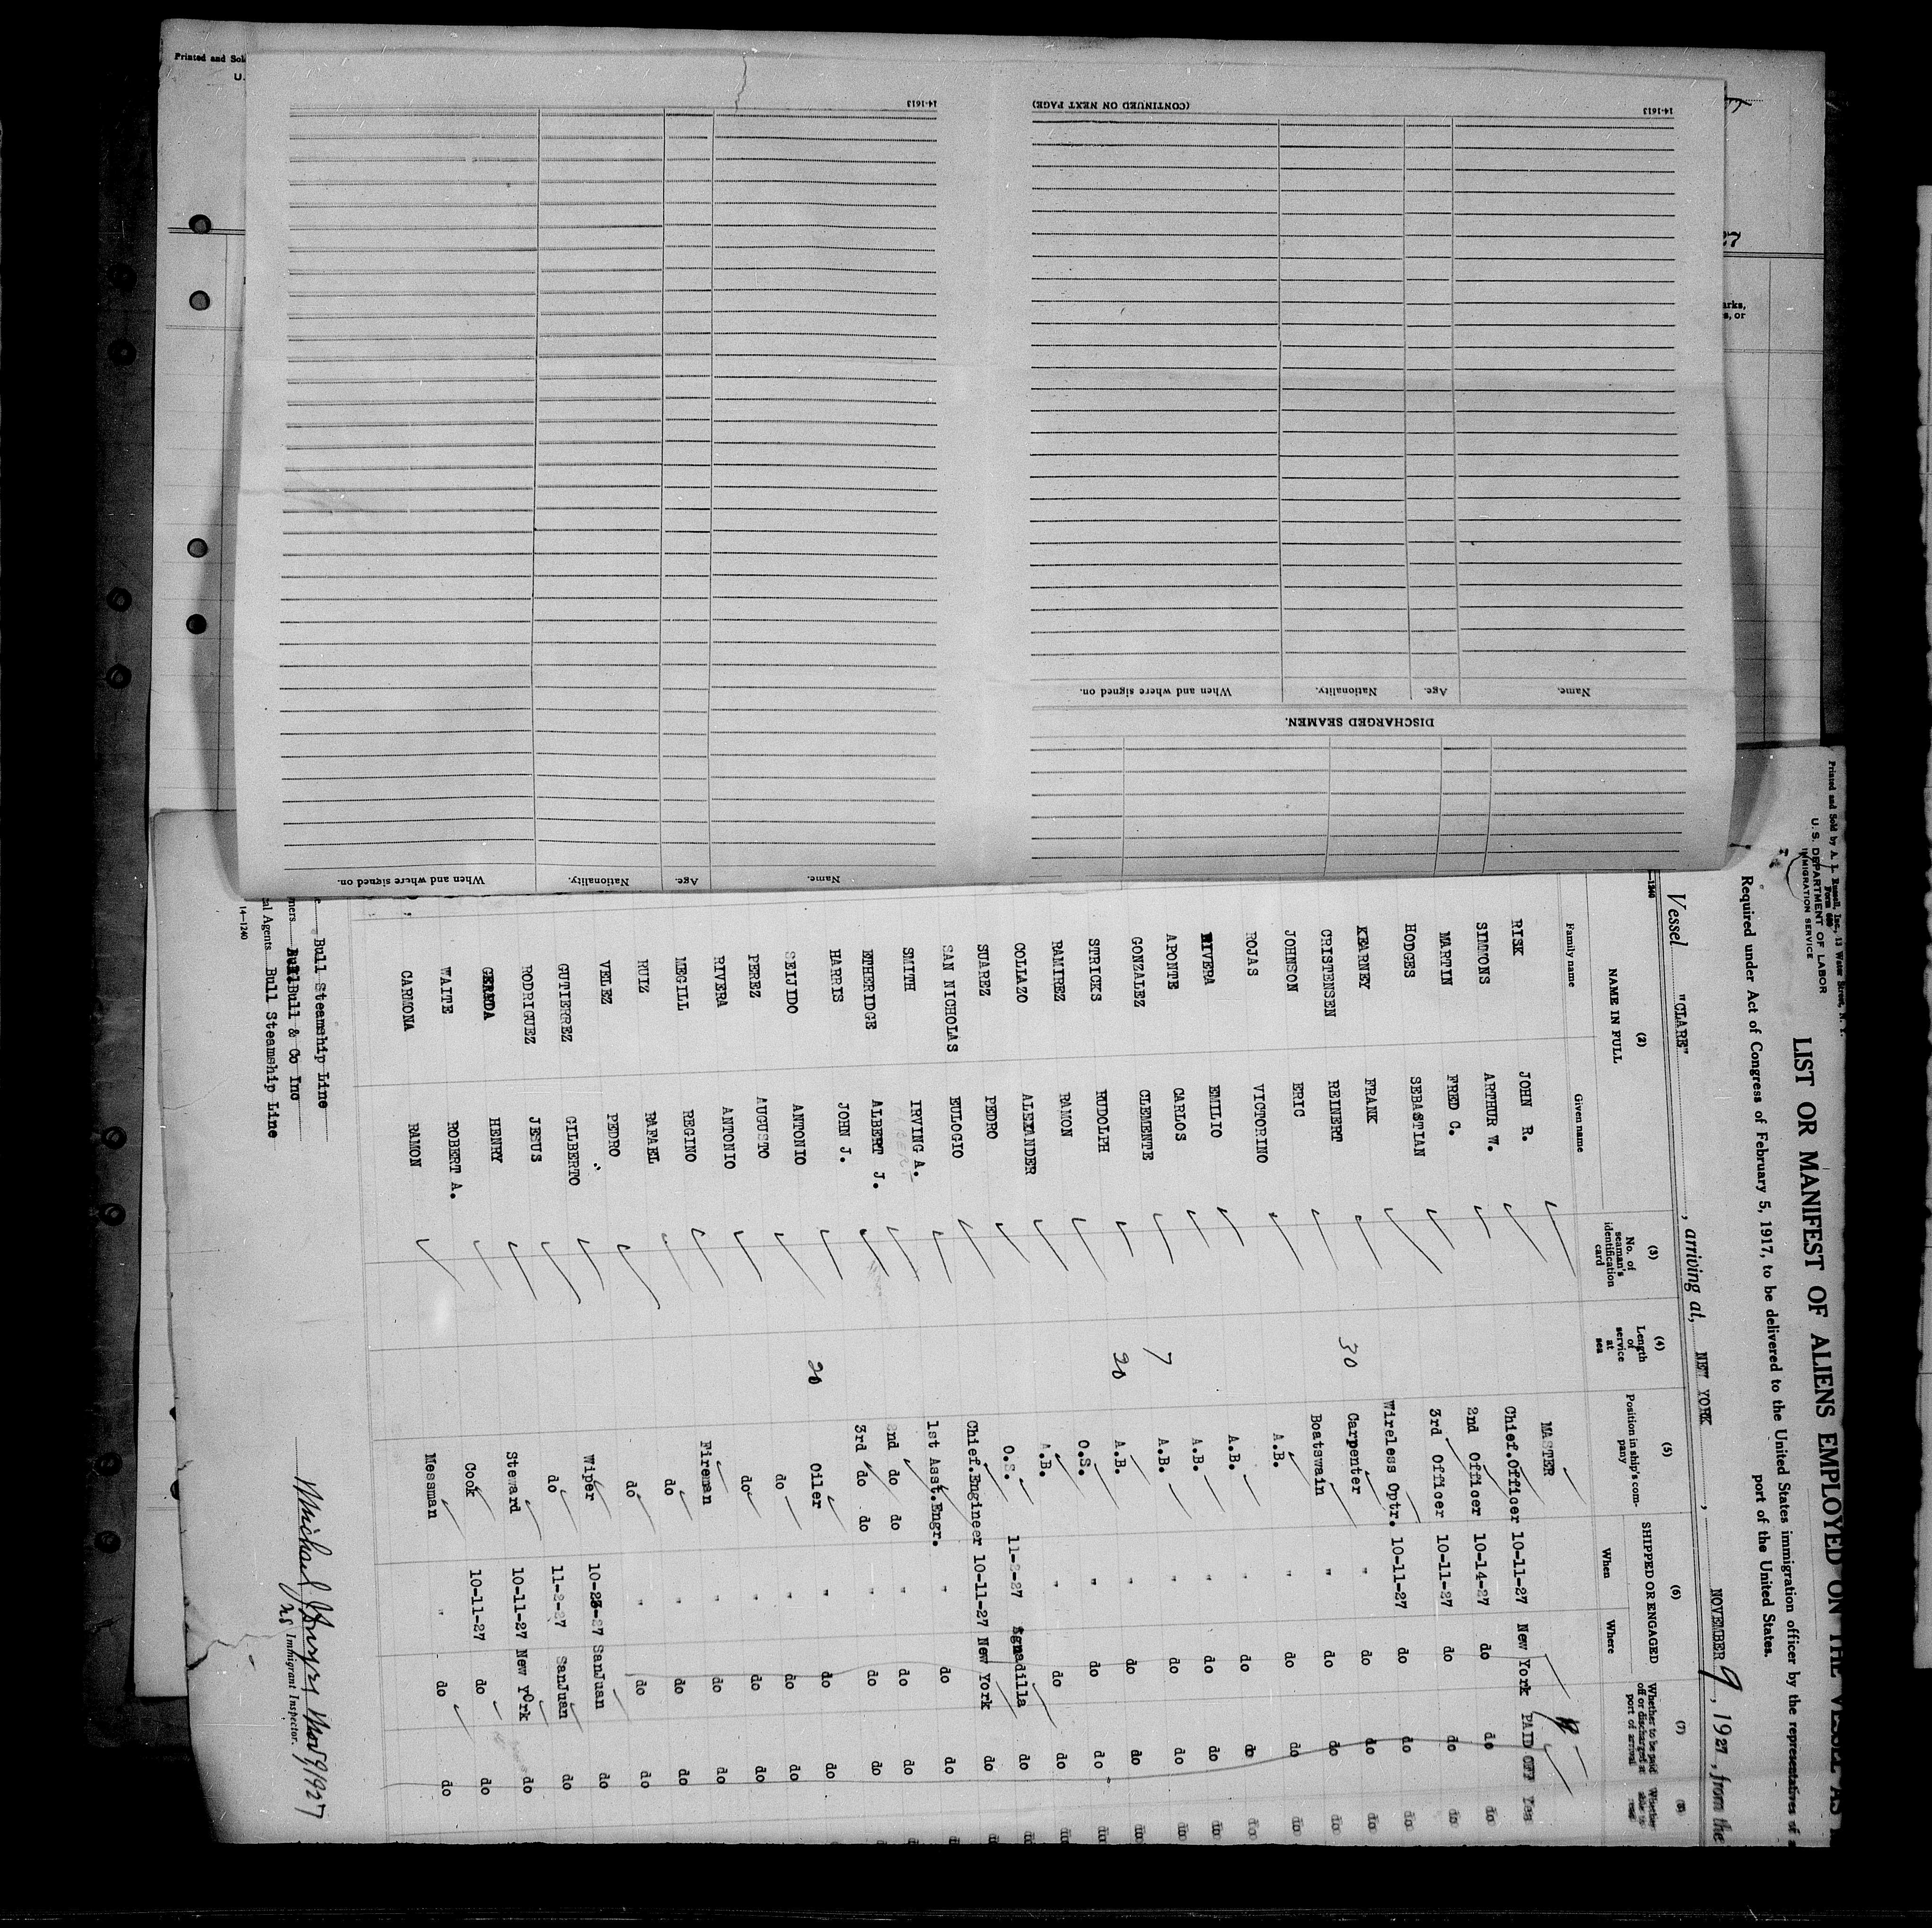 Printed and Sold
U.
14-1613
(CONTINUED ON NEXT PAGE)
14-1613
When and where signed on.
Nationality.
Age.
Name.
DISCHARGED SEAMEN.
Name.
Age.
Nationality.
When and where signed on.
27
arks,
s, or
Printed and Sold by A. L. Russell, Inc., 13 Water Street, N. Y.
Form 680
U. S. DEPARTMENT OF LABOR
IMMIGRATION SERVICE
LIST OR MANIFEST OF ALIENS EMPLOYED ON THE VESSEL AS
Required under Act of Congress of February 5, 1917, to be delivered to the United States immigration officer by the representatives of a
port of the United States.
Vessel "CLARE", arriving at, NEW YORK, NOVEMBER 9, 1927, from the
—1240
(2) (3) (4) (5) (6) (7) (8)
NAME IN FULL No. of seaman's identification card Length of service at sea Position in ship's company SHIPPED OR ENGAGED Whether to be paid off or discharged at port of arrival Whether able to read
Family name Given name When Where
RISK JOHN R. MASTER
SIMMONS ARTHUR W. Chief.Officer 10-11-27 New York PAID OFF Yes
MARTIN FRED C. 2nd Officer 10-14-27 do do do
HODGES SEBASTIAN 3rd Officer 10-11-27 do do do
KEARNEY FRANK Wireless Optr. 10-11-27 do do do
CRISTENSEN REINERT 30 Carpenter " do do do
JOHNSON ERIC Boatswain " do do do
ROJAS VICTORINO A.B. do do do
RIVERA EMILIO A.B. " do do do
APONTE CARLOS A.B. " do do do
GONZALEZ CLEMENTE 7 A.B. " do do do
STRICKS RUDOLPH 20 A.B. " do do do
RAMIREZ RAMON O.S. " do do do
COLLAZO ALEXANDER A.B. " do do do
SUAREZ PEDRO O.S. 11-2-27 Aguadilla do do
SAN NICHOLAS EULOGIO Chief.Engineer 10-11-27 New York do do
SMITH IRVING A. 1st Asst.Engr. " do do do
ETHERIDGE ALBERT J. 2nd do do " do do do
HARRIS JOHN J. 3rd do do " do do do
SEIJIDO ANTONIO 20 Oiler " do do
PEREZ AUGUSTO do " do do
RIVERA ANTONIO do " do do
MEGILL REGINO Fireman " do do
RUIZ RAFAEL do " do do
VELEZ PEDRO do " do do
GUTIERREZ GILBERTO Wiper 10-23-27 SanJuan do
RODRIGUEZ JESUS do 11-2-27 SanJuan do
HENRY Steward 10-11-27 New York do
WAITE ROBERT A. Cook 10-11-27 do do
CARMONA RAMON Messman " do do
Bull Steamship Line
ners Bull & Co Inc
al Agents Bull Steamship Line
14—1240
Nov 9/1927
Immigrant Inspector.